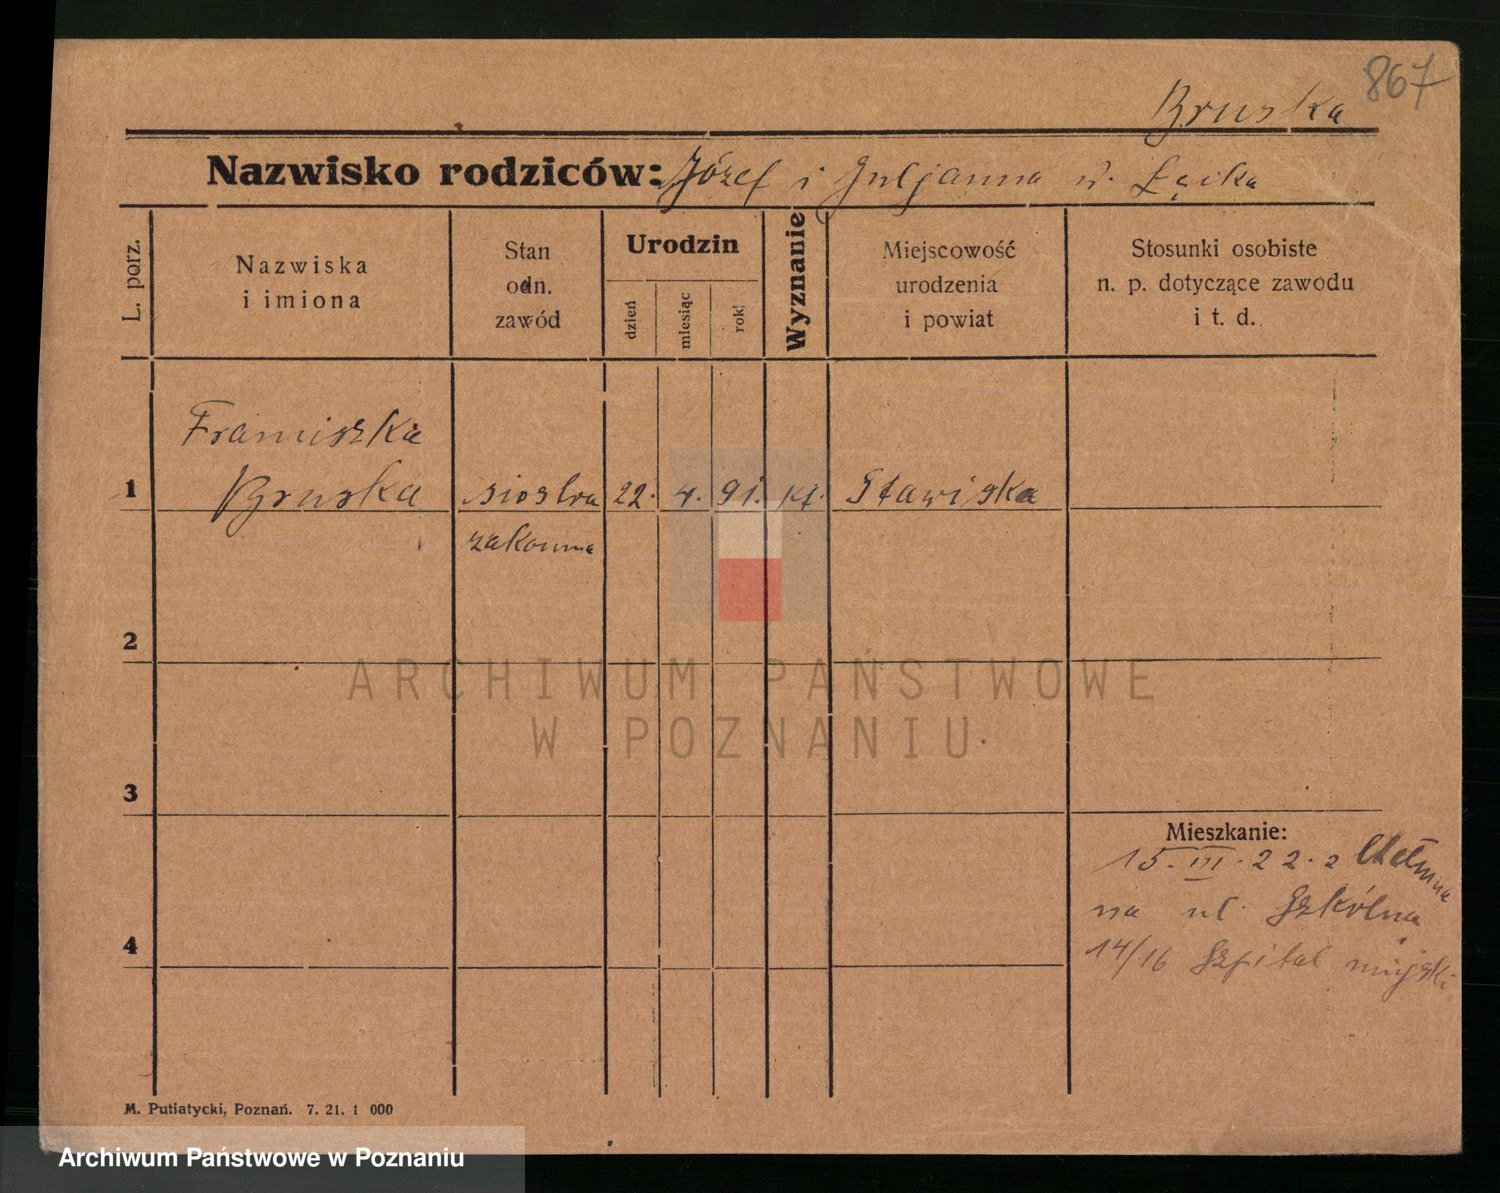 867
Bruska
Nazwisko rodziców: Józef i Juljanna u. Łęcka
L. porz.
Nazwiska
i imiona
Stan
odn.
zawód
Urodzin
dzień
miesiąc
rok
Wyznanie
Miejscowość
urodzenia
i powiat
Stosunki osobiste
n. p. dotyczące zawodu
i t. d.
Franciszka
1 Bruska siostra 22. 4. 91. kt. Stawiska
zakonna
2
ARCHIWUM PAŃSTWOWE
W POZNANIU
3
Mieszkanie:
15. III. 22. z Chełmna
na ul. Szkólna
4
14/16 Szpital miejski
M. Putiatycki, Poznań. 7. 21. 1 000
Archiwum Państwowe w Poznaniu